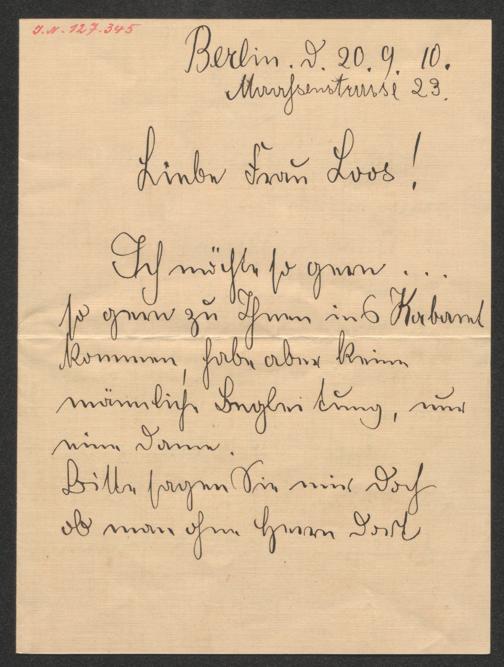 J.N. 127.345
Berlin. d. 20.9.10.
Maassenstrasse 23.
Liebe Frau Loos!
Ich möchte so gern ...
so gern zu Ihnen ins Kabaret
kommen, habe aber keine
männliche Begleitung, nur
eine Dame.
Bitte sagen Sie mir doch
ob man ohne Herrn dort